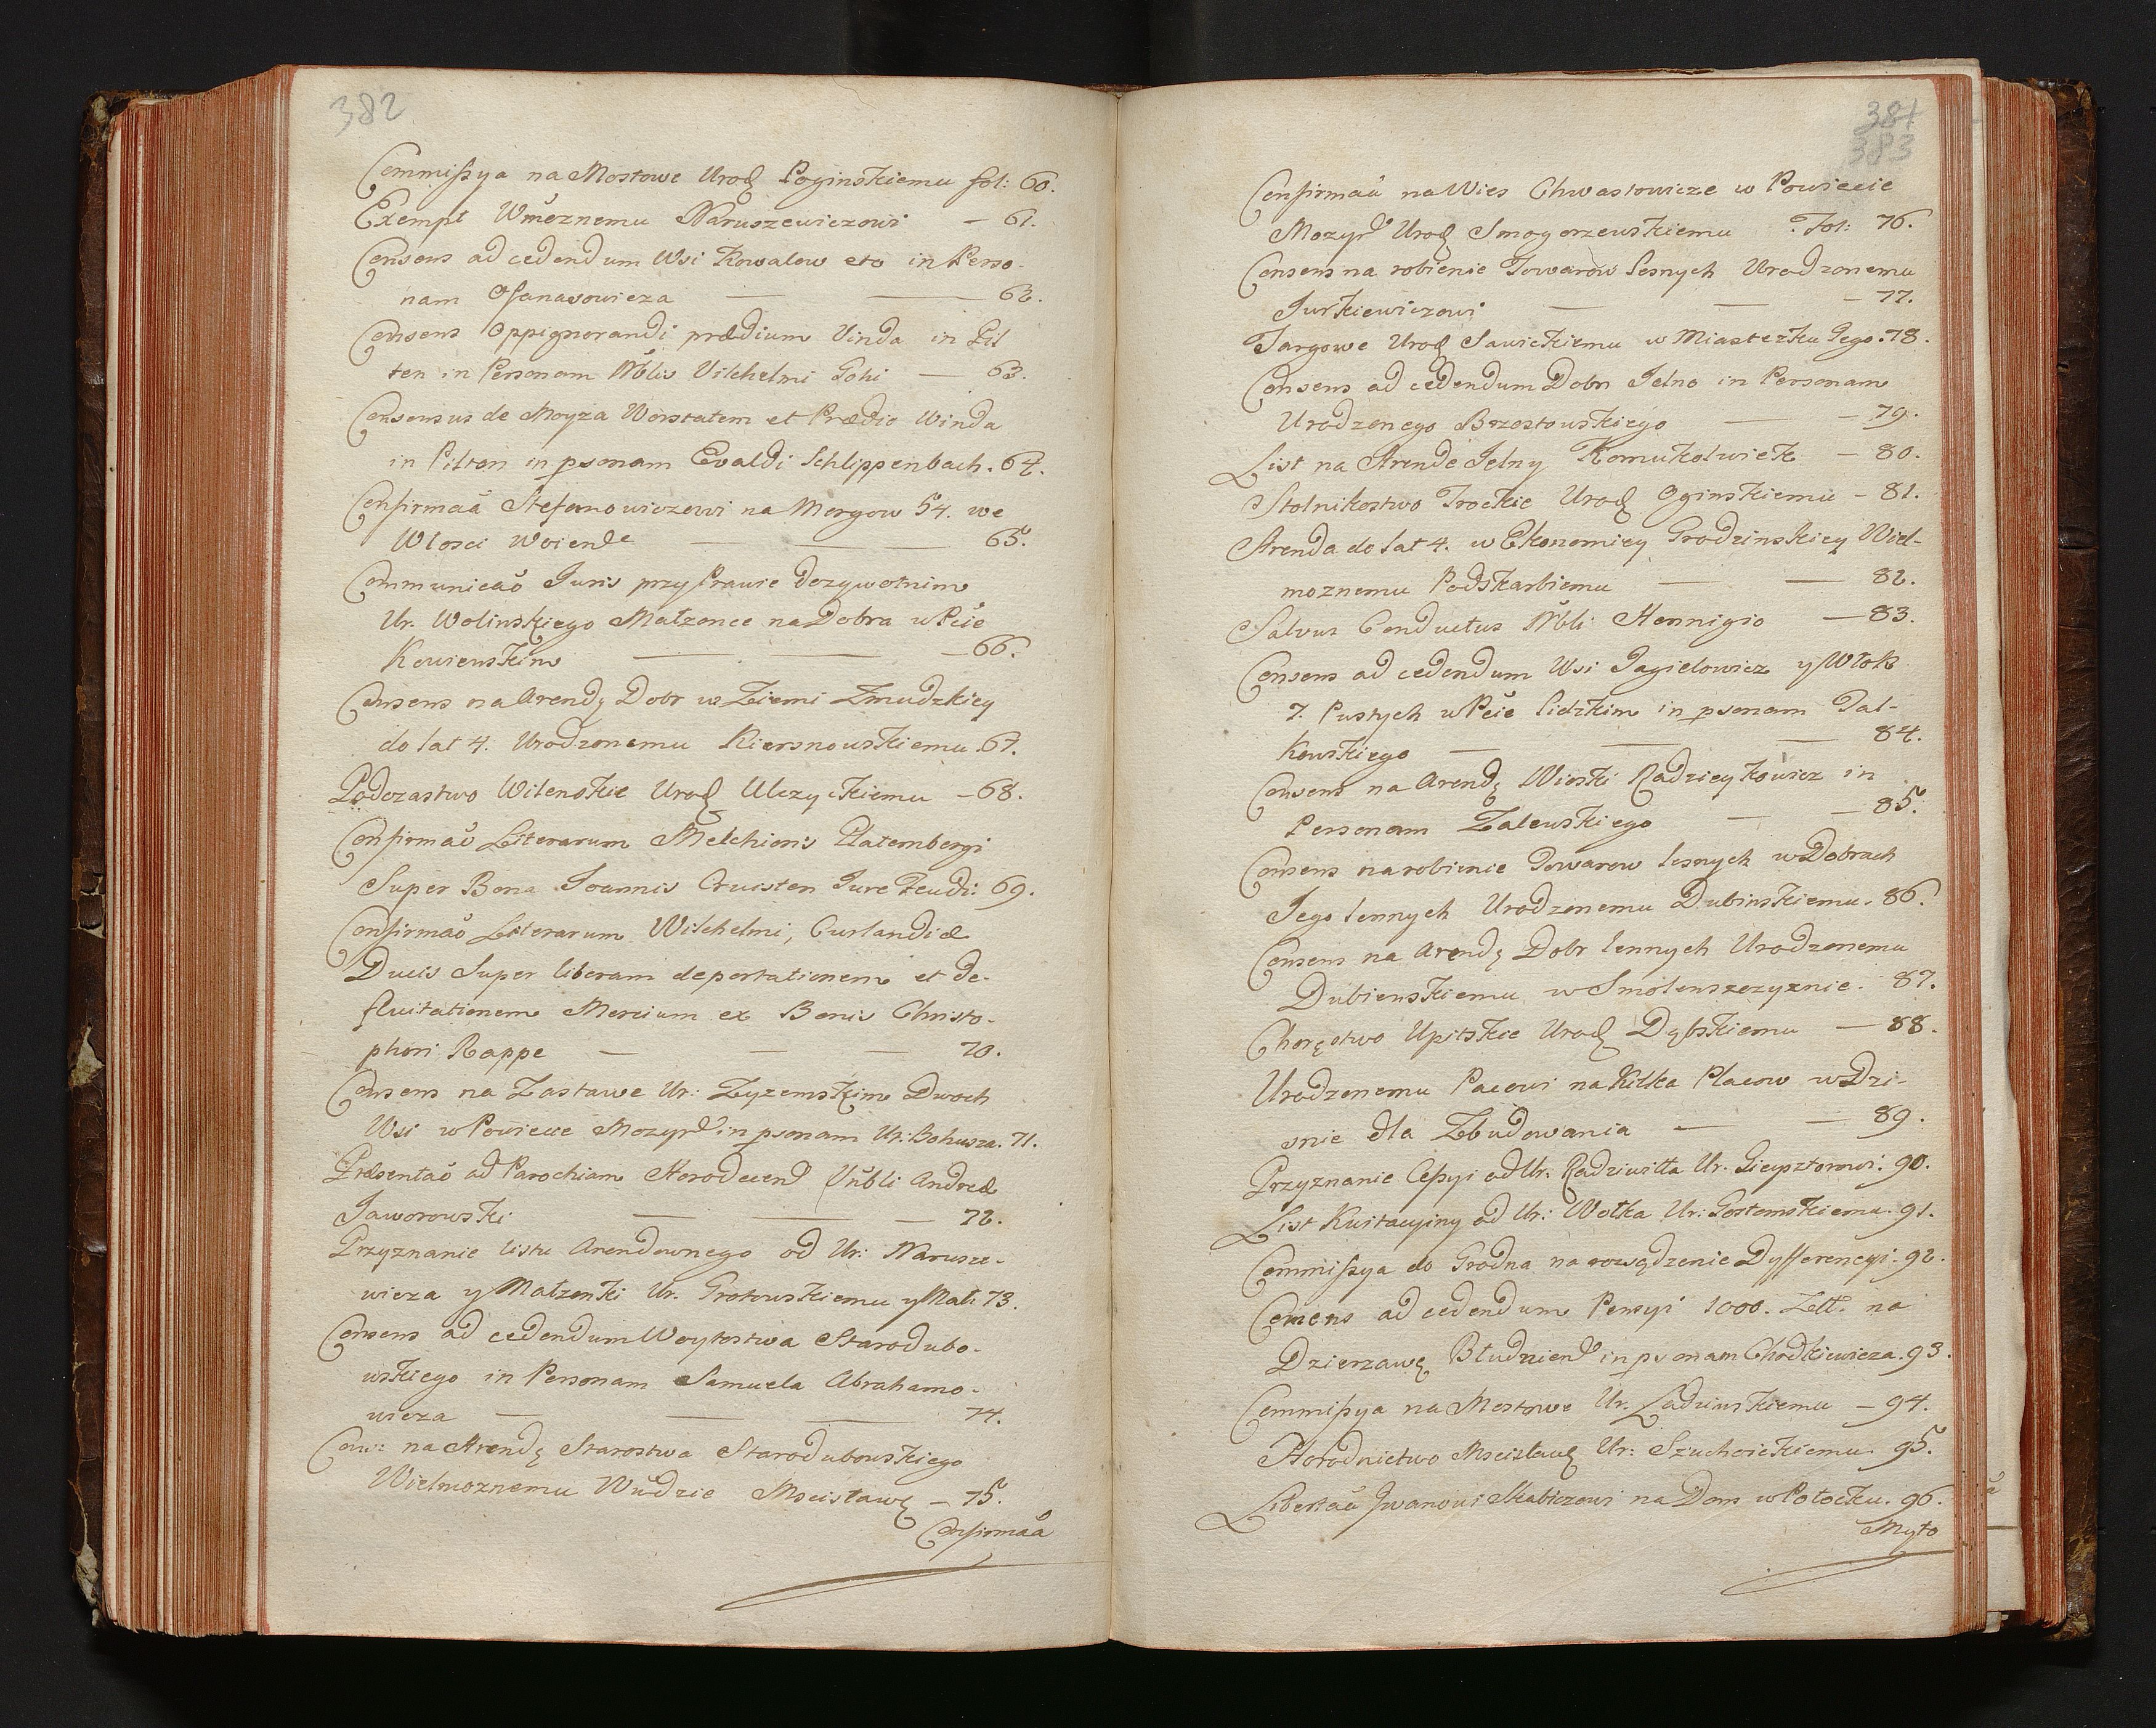 382
Commissya na Mostowe Urod Poginskiemu fol: 60.
Exempt Wmeznemu Naruszewiczowi — 61.
Consens ad cedendum Wsi Kowalow etc in Perso-
nam Ofanasowicza — — 62.
Consens Oppignorandi prædium Vinda in Pil
ten in Personam Nblis Vilchelmi Gohi — 63.
Consensus de Moyza Worstatem et Prædio Winda
in Pilten in psonam Evaldi Schlippenbach. 64.
Confirmaã Stefanowiczowi na Morgow 54. we
Wlosci Woiend — — — 65.
Communicaõ Juris przy Prawie dozywotnim
Ur. Wolinskiego Małzonce na Dobra w Pcie
Kowienskim — — — 66.
Consens na Arendę Dobr w Ziemi Zmudzkiey
do lat 4. Urodzonemu Kiersnowskiemu. 67.
Podczastwo Wilenskie Urod Ulczyckiemu — 68.
Confirmaõ Literarum Melchioris Platembergi
Super Bona Joannis Cruisten Jure Feudi: 69.
Confirmaõ Literarum Wilchelmi, Curlandiæ
Ducis Super liberam deportationem et de-
fluitationem Mercium ex Bonis Christo-
phori Rappe — — — 70.
Consens na Zastawe Ur: Zyzemskim Dwoch
Wsi w Powiecie Mozyr in psonam Ur: Bohusza. 71.
Præsentaõ ad Parochiam Horodecen Vnbli Andreæ
Jaworowski — — — 72.
Przyznanie listu Arendownego od Ur: Narusze-
wicza y Małzonki Ur. Grotowskiemu y Mał: 73.
Consens ad cedendum Woytostwa Starodubo-
wskiego in Personam Samuela Abrahamo-
wicza — — — 74.
Cons: na Arendę Starostwa Starodubowskiego
Wielmoznemu Wudzie Mscisław — 75.
Confirmaã
381
383
Confirmaã na Wies Chwastowicze w Powiecie
Mozyr Urod Smogorzewskiemu Fol: 76.
Consens na robienie Towarow Lesnych Urodzonemu
Jurkiewiczowi — — — 77.
Targowe Urod Sawickiemu w Miasteczku Jego. 78.
Consens ad cedendum Dobr Jelno in Personam
Urodzonego Brzostowskiego — — 79.
List na Arende Jelny Komukolwiek — 80.
Stolnikostwo Trockie Urod Oginskiemu — 81.
Arenda do lat 4. w Ekonomiey Grodzinskiey Wiel-
moznemu Podskarbiemu — — 82.
Salvus Conductus Nbli Hennigio — 83.
Consens ad cedendum Wsi Jagielowicz y Włok
7. Pustych w Pcie lidzkim in psonam Pal-
kowskiego — — — 84.
Consens na Arendę Wioski Radzieykowicz in
Personam Zalewskiego — — 85.
Consens na robienie Towarow lesnych w Dobrach
Jego lennych Urodzonemu Dubinskiemu. 86.
Consens na Arendę Dobr lennych Urodzonemu
Dubienskiemu w Smolenszczyznie. 87.
Choręstwo Upitskie Urod Dębskiemu — 88.
Urodzonemu Pacowi na Kilka Placow w Dzi-
snie dla Zbudowania — — 89.
Przyznanie Cessyi od Ur. Radziwiłła Ur. Giepsztorowi. 90.
List Kwitacyiny od Ur: Wołka Ur: Gostomskiemu. 91.
Commissya do Grodna na rozsądzenie Dyfferencyi. 92.
Consens ad cedendum Pensyi 1000. Złł. na
Dzierzawę Błudnien in psonam Chodkiewicza. 93.
Commissya na Mostowe Ur. Ladzinskiemu — 94.
Horodnictwo Mscisław Ur: Szuchcickiemu. 95.
Libertaã Jwanowi Skabiczowi na Dom w Połocku. 96.
Myto